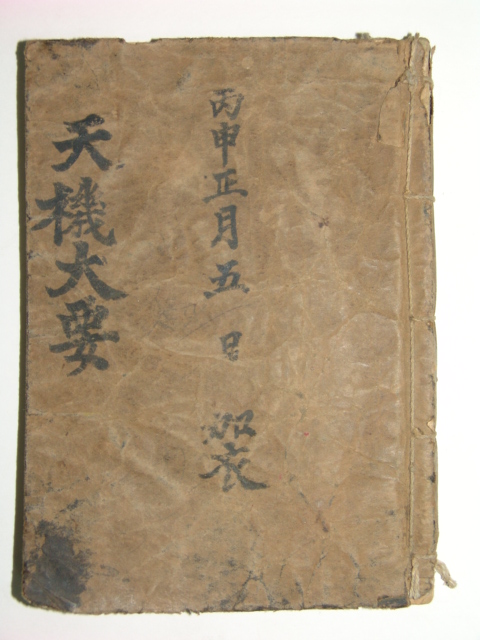 丙申正月五日
天機大要